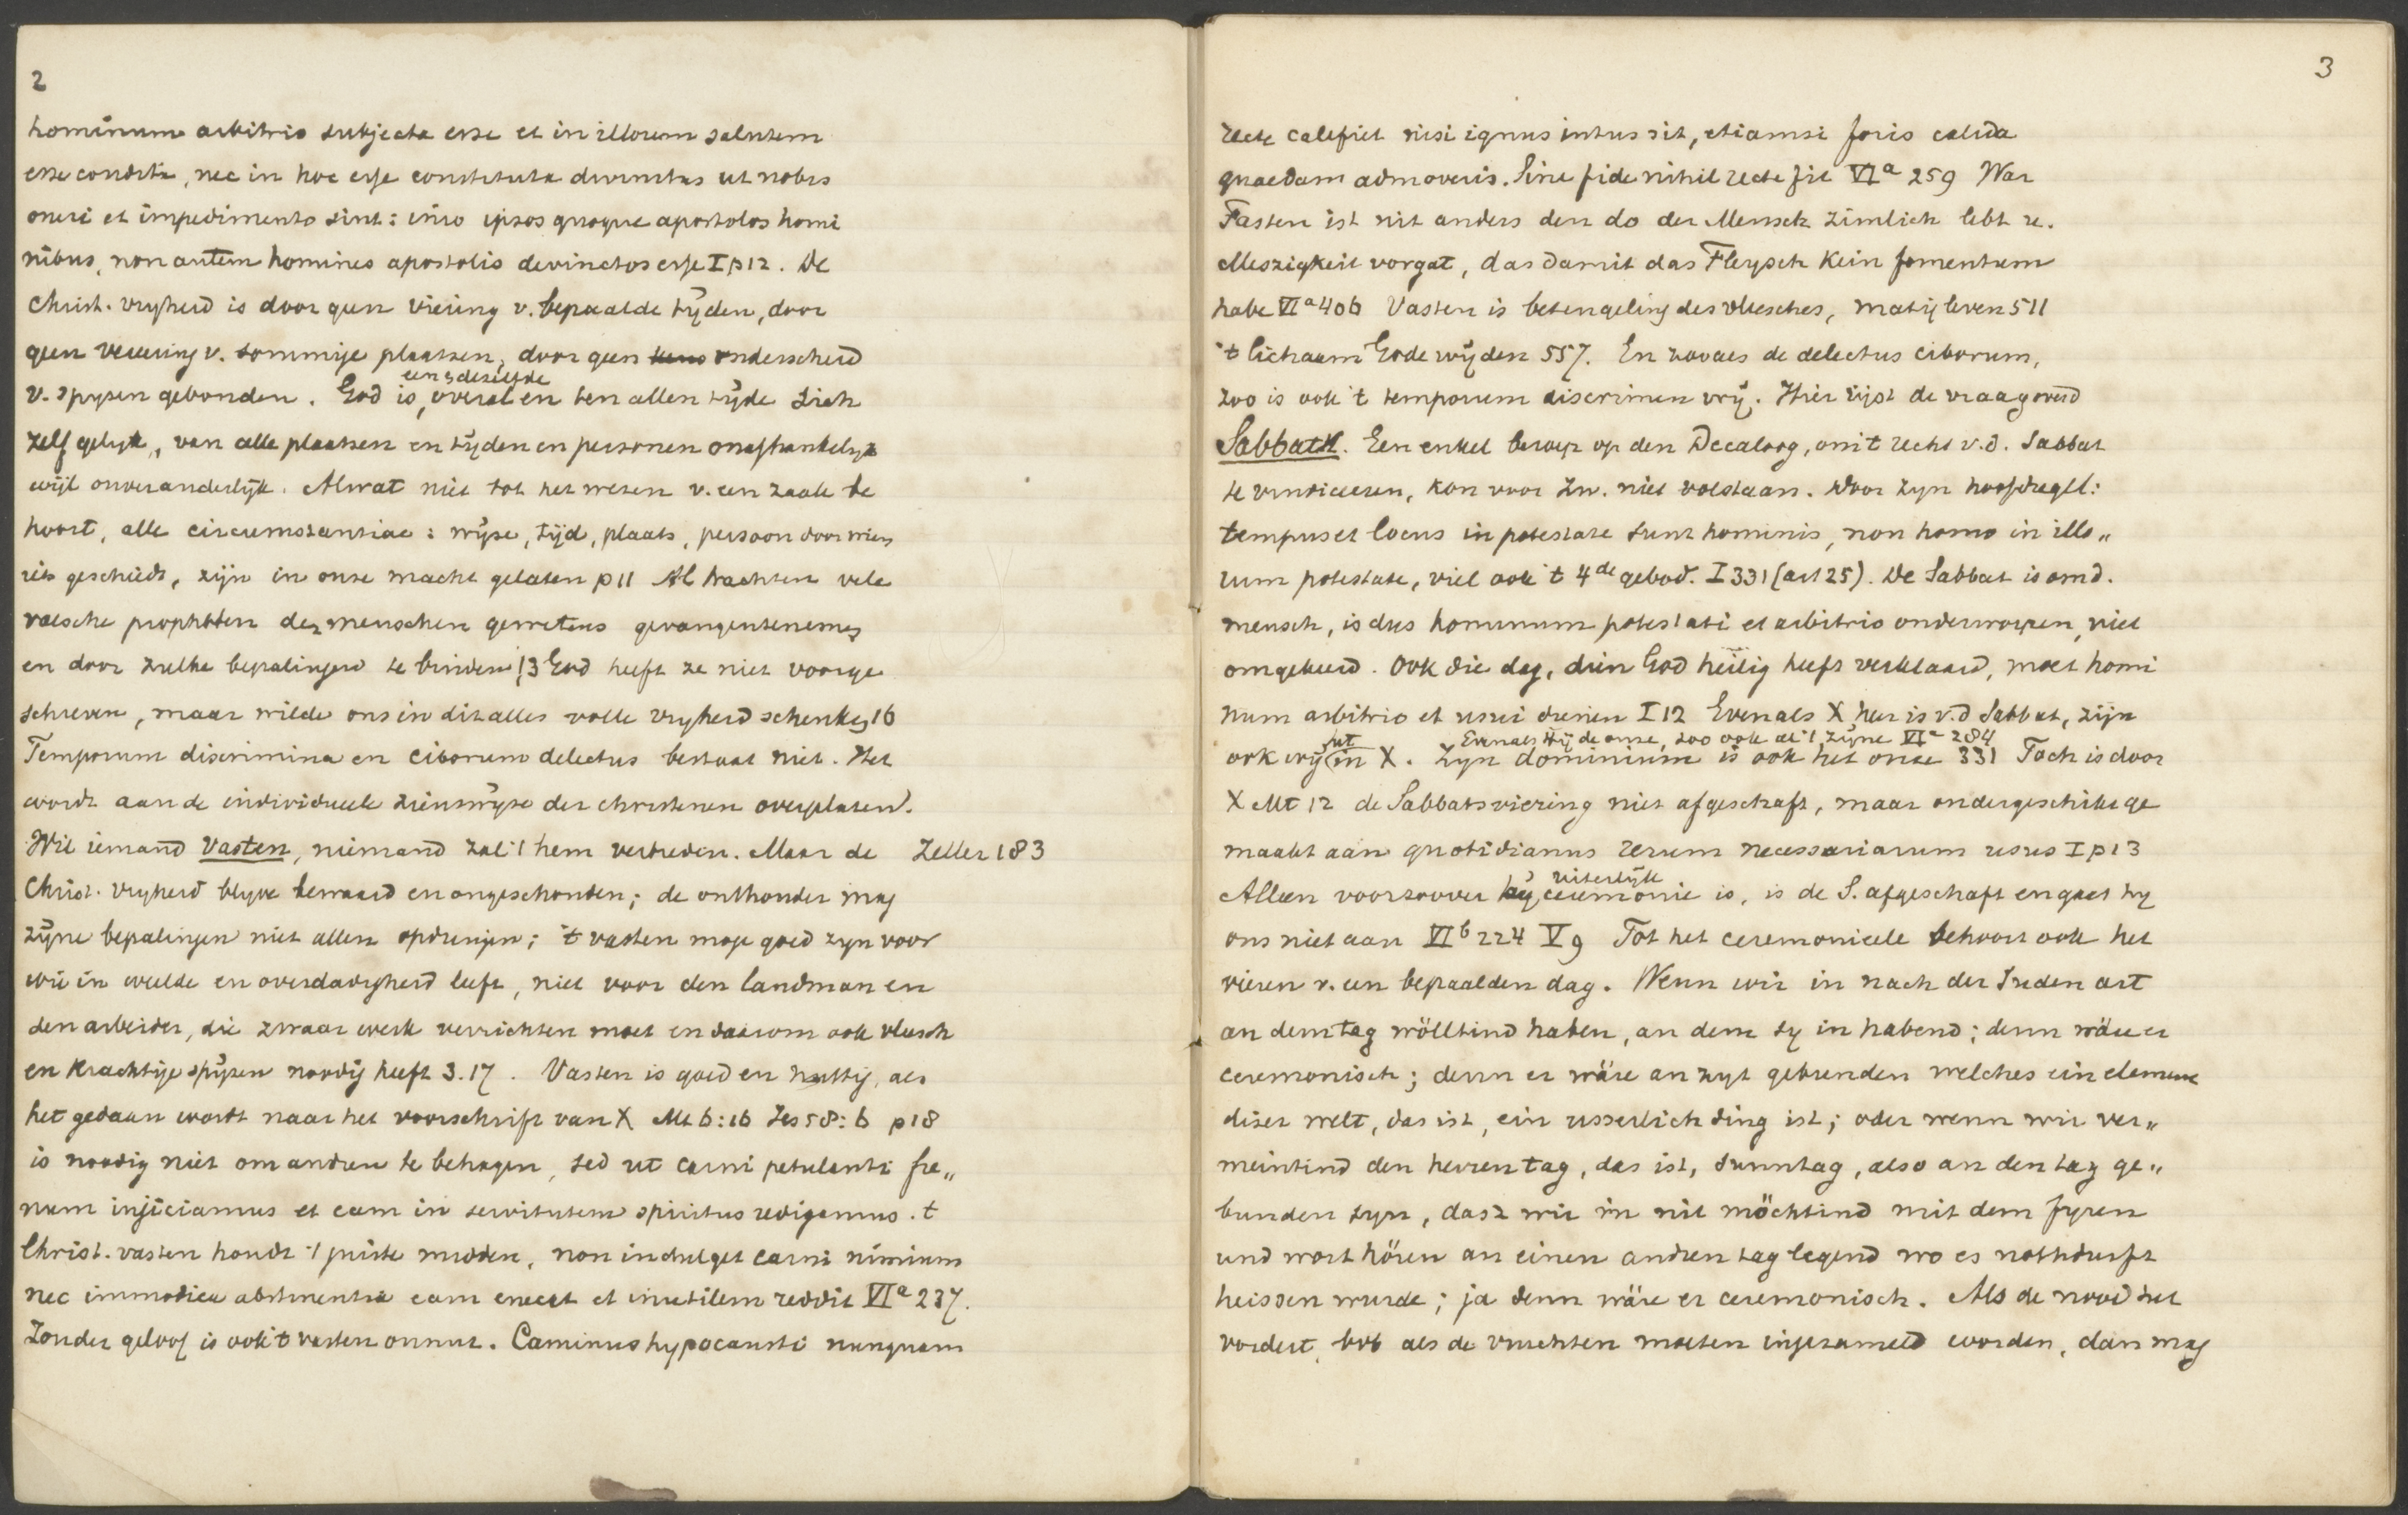 2
hominum arbitrio subjecta esse et in illorum salutem
esse condita, nec in hoc esse constituta divinitus ut nobis
oneri et impedimento sint: imo ipsos quoque apostolos homi
nibus, non autem homines apostolis devinctos esse I p 12. De
Christ. vryheid is door geen viering v. bepaalde tijden, door
geen vereering v. sommige plaatsen, door geen onderscheid
v. spyzen gebonden. God is, een & dezelfde overal en ten allen tijde zich
zelf gelyk, van alle plaatsen en tijden en personen onafhankelyk
wijl onveranderlijk. Alwat niet tot het wezen v. een zaak be
hoort, alle circumstantiae: wijze, tijd, plaats, persoon door wien
iets geschiedt, zijn in onze macht gelaten p 11 Al trachten vele
valsche propheten der menschen gewetens gevangen te nemen
en door zulke bepalingen te binden 13 God heeft ze niet voorge
schreven, maar wilde ons in dit alles volle vryheid schenken 16
Temporum discrimina en ciborum delectus bestaat niet. Het
wordt aan de individueele zienswijze der christenen overgelaten.
Wil iemand vasten, niemand zal 't hem verbieden. Maar de Zeller 183
Christ. vryheid blyve bewaard en ongeschonden; de onthouder mag
zijne bepalingen niet allen opdringen; 't vasten moge goed zyn voor
wie in weelde en overdadigheid leeft, niet voor den landman en
den arbeider, die zwaar werk verrichten moet en daarom ook vleesch
en krachtige spijzen noodig heeft 3.17. Vasten is goed en nuttig, als
het gedaan wordt naar het voorschrift van X Mt 6:16 Jes 58:6 p 18
is noodig niet om andren te behagen, sed ut carni petulanti fre„
num injiciamus et eam in servitutem spiritus redigamus. 't
Christ. vasten houdt 't juiste midden, non indulget carni nimium
nec immodica abstinentia eam enecat et inutilem reddit VIa 237.
Zonder geloof is ook 't vasten onnut. Caminus hypocausti nunquam
3
recte calefiet nisi ignus intus sit, etiamsi foris calida
quaedam admoveris. Sine fide nihil recte fit VIa 259 War
Fasten ist nit anders den do der Mensch zimlich lebt u.
Meszigkeit vorgat, das damit das Fleysch Kein fomentum
habe VIa 406 Vasten is beteugeling des vleesches, matig leven 511
't lichaam Gode wijden 557. En zooals de delectus ciborum,
zoo is ook 't temporum discrimen vrij. Hier rijst de vraag over d
Sabbath. Een enkel beroep op den Decaloog, om 't recht v.d. Sabbat
te vindiceeren, kon voor Zw. niet volstaan. Door zyn hoofdregel:
tempus et locus in potestate sunt hominis, non homo in illo„
rum potestate, viel ook 't 4de gebod. I 331 (art 25). De Sabbat is om d.
mensch, is dus hominum potestati et arbitrio onderworpen, niet
omgekeerd. Ook die dag, dien God heilig heeft verklaard, moet homi
num arbitrio et usui dienen I 12 Evenals X heer is v.d Sabbat, zijn
Evenals Hij de onze, zoo ook al 't zijne VIa 284
ook wij uit in X. Zyn dominium is ook het onze 331 Toch is door
X Mt 12 de Sabbatsviering niet afgeschaft, maar ondergeschikt ge
maakt aan quotidianus rerum necessariarum usus I p 13
Alleen voorzoover hij, uiterlijk ceremonie is, is de S. afgeschaft en gaat hy
ons niet aan VIb 224 V 9 Tot het ceremonieele behoort ook het
vieren v. een bepaalden dag. Wenn wir in nach der Juden art
an dem tag wölltind haben, an dem sy in habend; denn wäre er
ceremonisch; denn er wäre an zyt gebunden welches ein element
diser welt, das ist, ein usserlich ding ist; oder wenn wir ver„
meintind den herren tag, das ist, sunntag, also an den tag ge„
bunden syn, dasz wir in nit möchtind mit dem fyren
und wort hören an einen andren tag legend wo es nothdurft
heissen wurde; ja denn wäre er ceremonisch. Als de nood het
vordert, bvb als de vruchten moeten ingezameld worden, dan mag